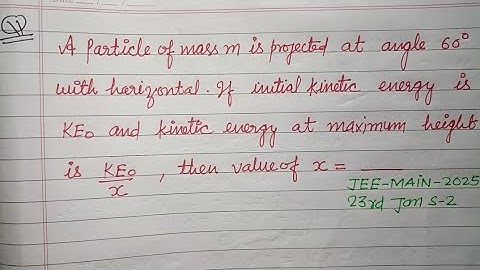 Q
A Particle of mass m is projected at angle 60°
with horizontal. If initial kinetic energy is
KE₀ and kinetic energy at maximum height
is KE₀/x, then value of x = ____
JEE-MAIN-2025
23rd Jan S-2